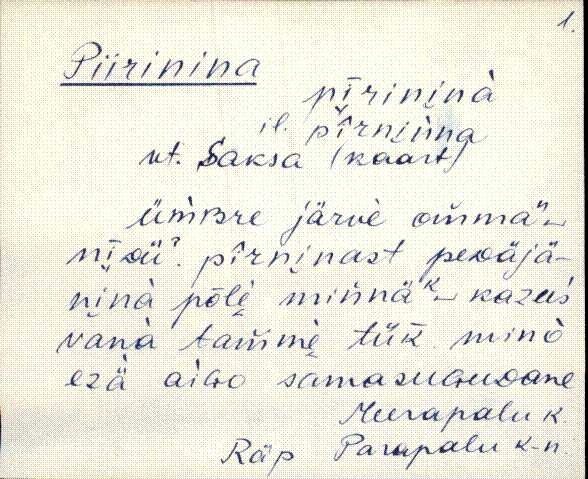 1.
Piirinina
pīrininà
il. pîrniǹna
vt. Saksa (kaart)
üm̀ʙre järvè om̀mäⁿ
nīᴅü? pîrninast peᴅäjä-
ninà põlè miǹnäᵏ kazus
vanà tam̀mè tük̄ minò
ezä aiɢo samasuɢuᴅane
Meerapalu k.
Räp Parapalu k-n.